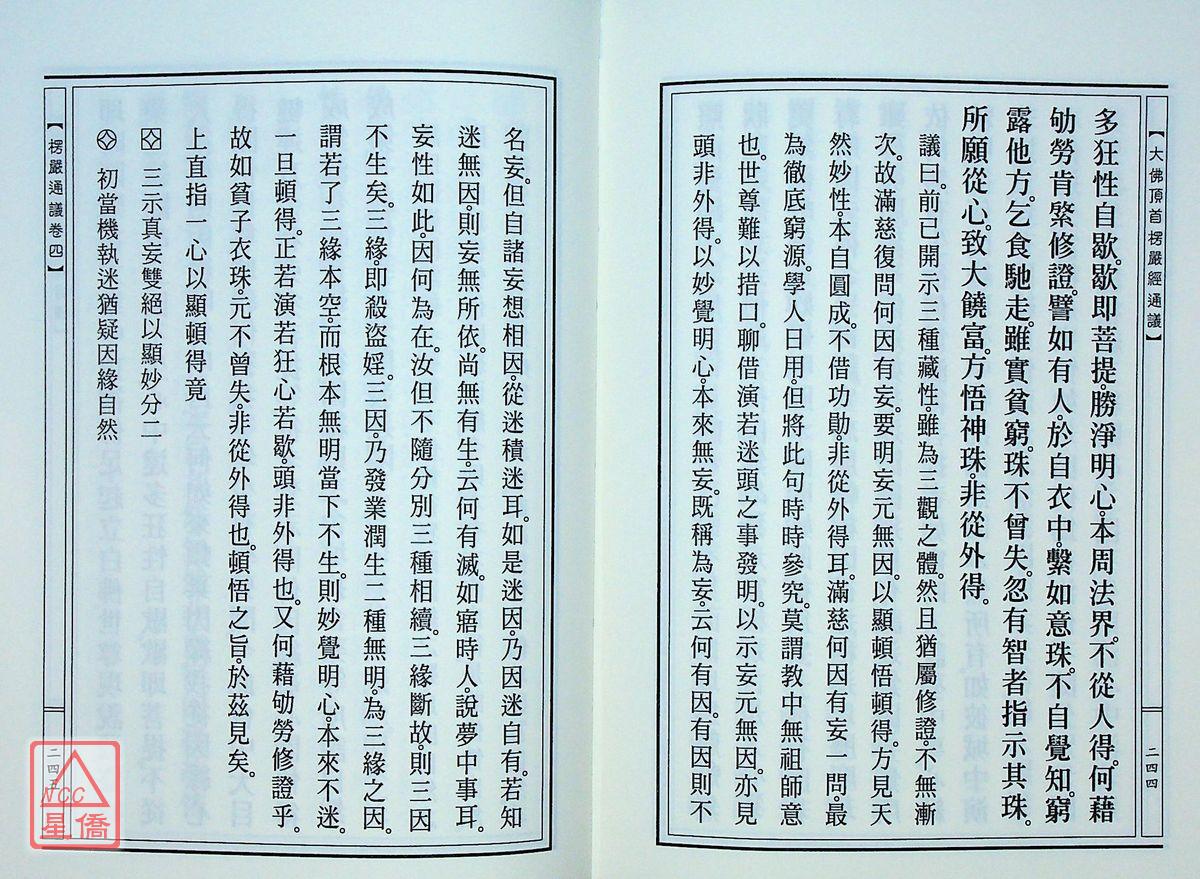 【大佛頂首楞嚴經通議】
二四四
多狂性自歇。歇即菩提。勝淨明心。本周法界。不從人得。何藉
劬勞肯綮修證。譬如有人。於自衣中。繫如意珠。不自覺知。窮
露他方。乞食馳走。雖實貧窮。珠不曾失。忽有智者。指示其珠。
所願從心。致大饒富。方悟神珠。非從外得。
議曰。前已開示三種藏性。雖為三觀之體。然且猶屬修證。不無漸
次。故滿慈復問何因有妄。要明妄元無因。以顯頓悟頓得。方見天
然妙性。本自圓成。不借功勛。非從外得耳。滿慈何因有妄一問。最
為徹底窮源。學人日用。但將此句時時參究。莫謂教中無祖師意
也。世尊難以措口。聊借演若迷頭之事發明。以示妄元無因。亦見
頭非外得。以妙覺明心。本來無妄。既稱為妄。云何有因。有因則不
名妄。但自諸妄想相因。從迷積迷耳。如是迷因。乃因迷自有。若知
迷無因。則妄無所依。尚無有生。云何有滅。如寤時人。說夢中事耳。
妄性如此。因何為在。汝但不隨分別三種相續。三緣斷故。則三因
不生矣。三緣。即殺盜婬。三因。乃發業潤生二種無明。為三緣之因。
謂若了三緣本空。而根本無明當下不生。則妙覺明心。本來不迷。
一旦頓得。正若演若狂心若歇。頭非外得也。又何藉劬勞修證乎。
故如貧子衣珠。元不曾失。非從外得也。頓悟之旨。於茲見矣。
上直指一心以顯頓得竟
三示真妄雙絕以顯妙分二
初當機執迷猶疑因緣自然
【楞嚴通議卷四】
二四五
NCC
星僑